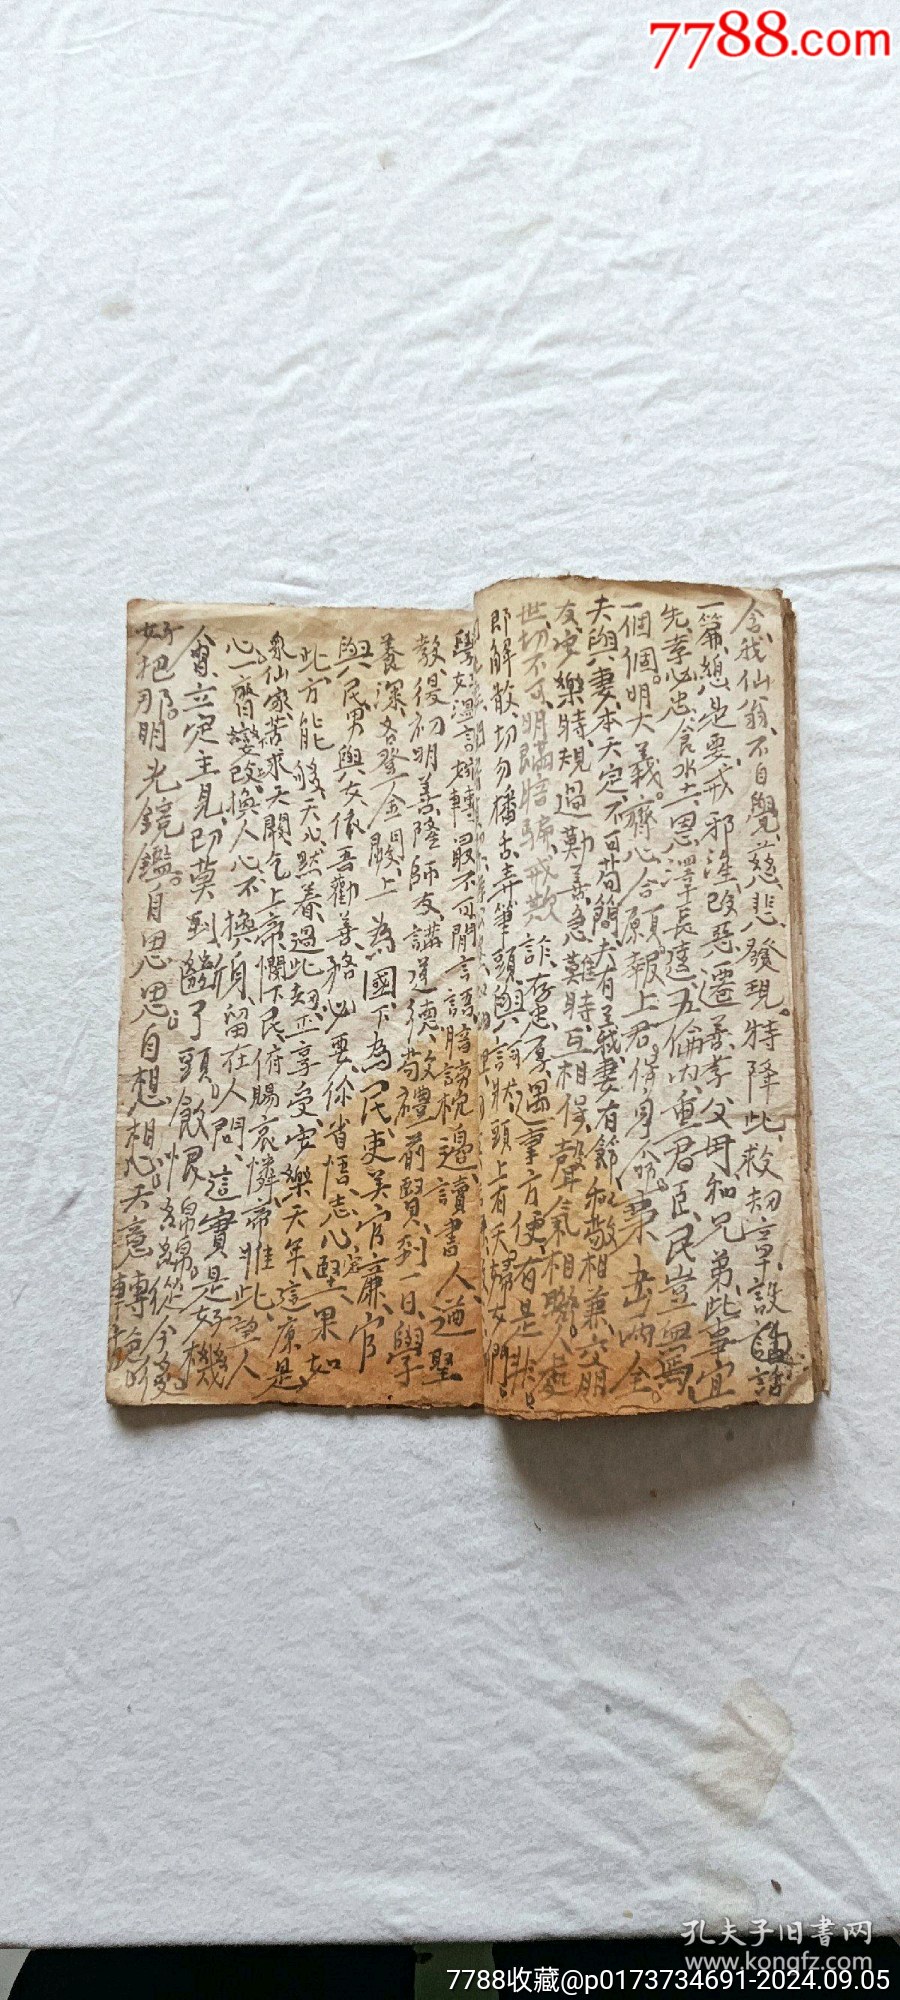 7788.com
含我仙翁、不自覺、慈悲發現。特降此、救劫章、設話
一篇、總是要、戒邪淫、改惡遷善、孝父母、和兄弟、此事宜
先、孝必忠、食水土、思澤長遠、五倫內、重君臣、民豈無焉、
一個個、明大義。齊心合願、報上君、
夫與妻、本天定、不可苟簡、夫有義、妻有節、和敬相兼、交朋
友、安樂時、規過勸善、急難時、互相保、聲氣相聯。人處
世、切不可、明瞞暗騙、戒欺詐、存忠厚、遇事方便、有是非、
即解散、切勿播舌、弄筆頭、與詞狀、頭上有天、婦女們、
學好溫言婉轉、最不可、閒言語、勝謗枕邊、讀書人、遵聖
教、從初明善、隆師友、講道德、敬禮前賢、到一日、學
養深、名登金殿、上為國、下為民、吏美官廉、官
與民、男與女、依吾勸善、務必要、你省悟、志心堅定、果如
此、方能彀、天心默眷、過此劫、享受安樂天年、這原是
眾仙家、苦求天闕、乞上帝、憫下民、俯賜哀憐、帝惟此、望人
心、一齊變改、換人心、不換頭、留在人間、這實是、好機
會、立定主見、切莫到、斷了頭。飲恨綿綿。從今後
好把那。明光鏡鑑。自思思。自想想。天意轉
孔夫子旧書网
www.kongfz.com
7788收藏@p0173734691-2024.09.05